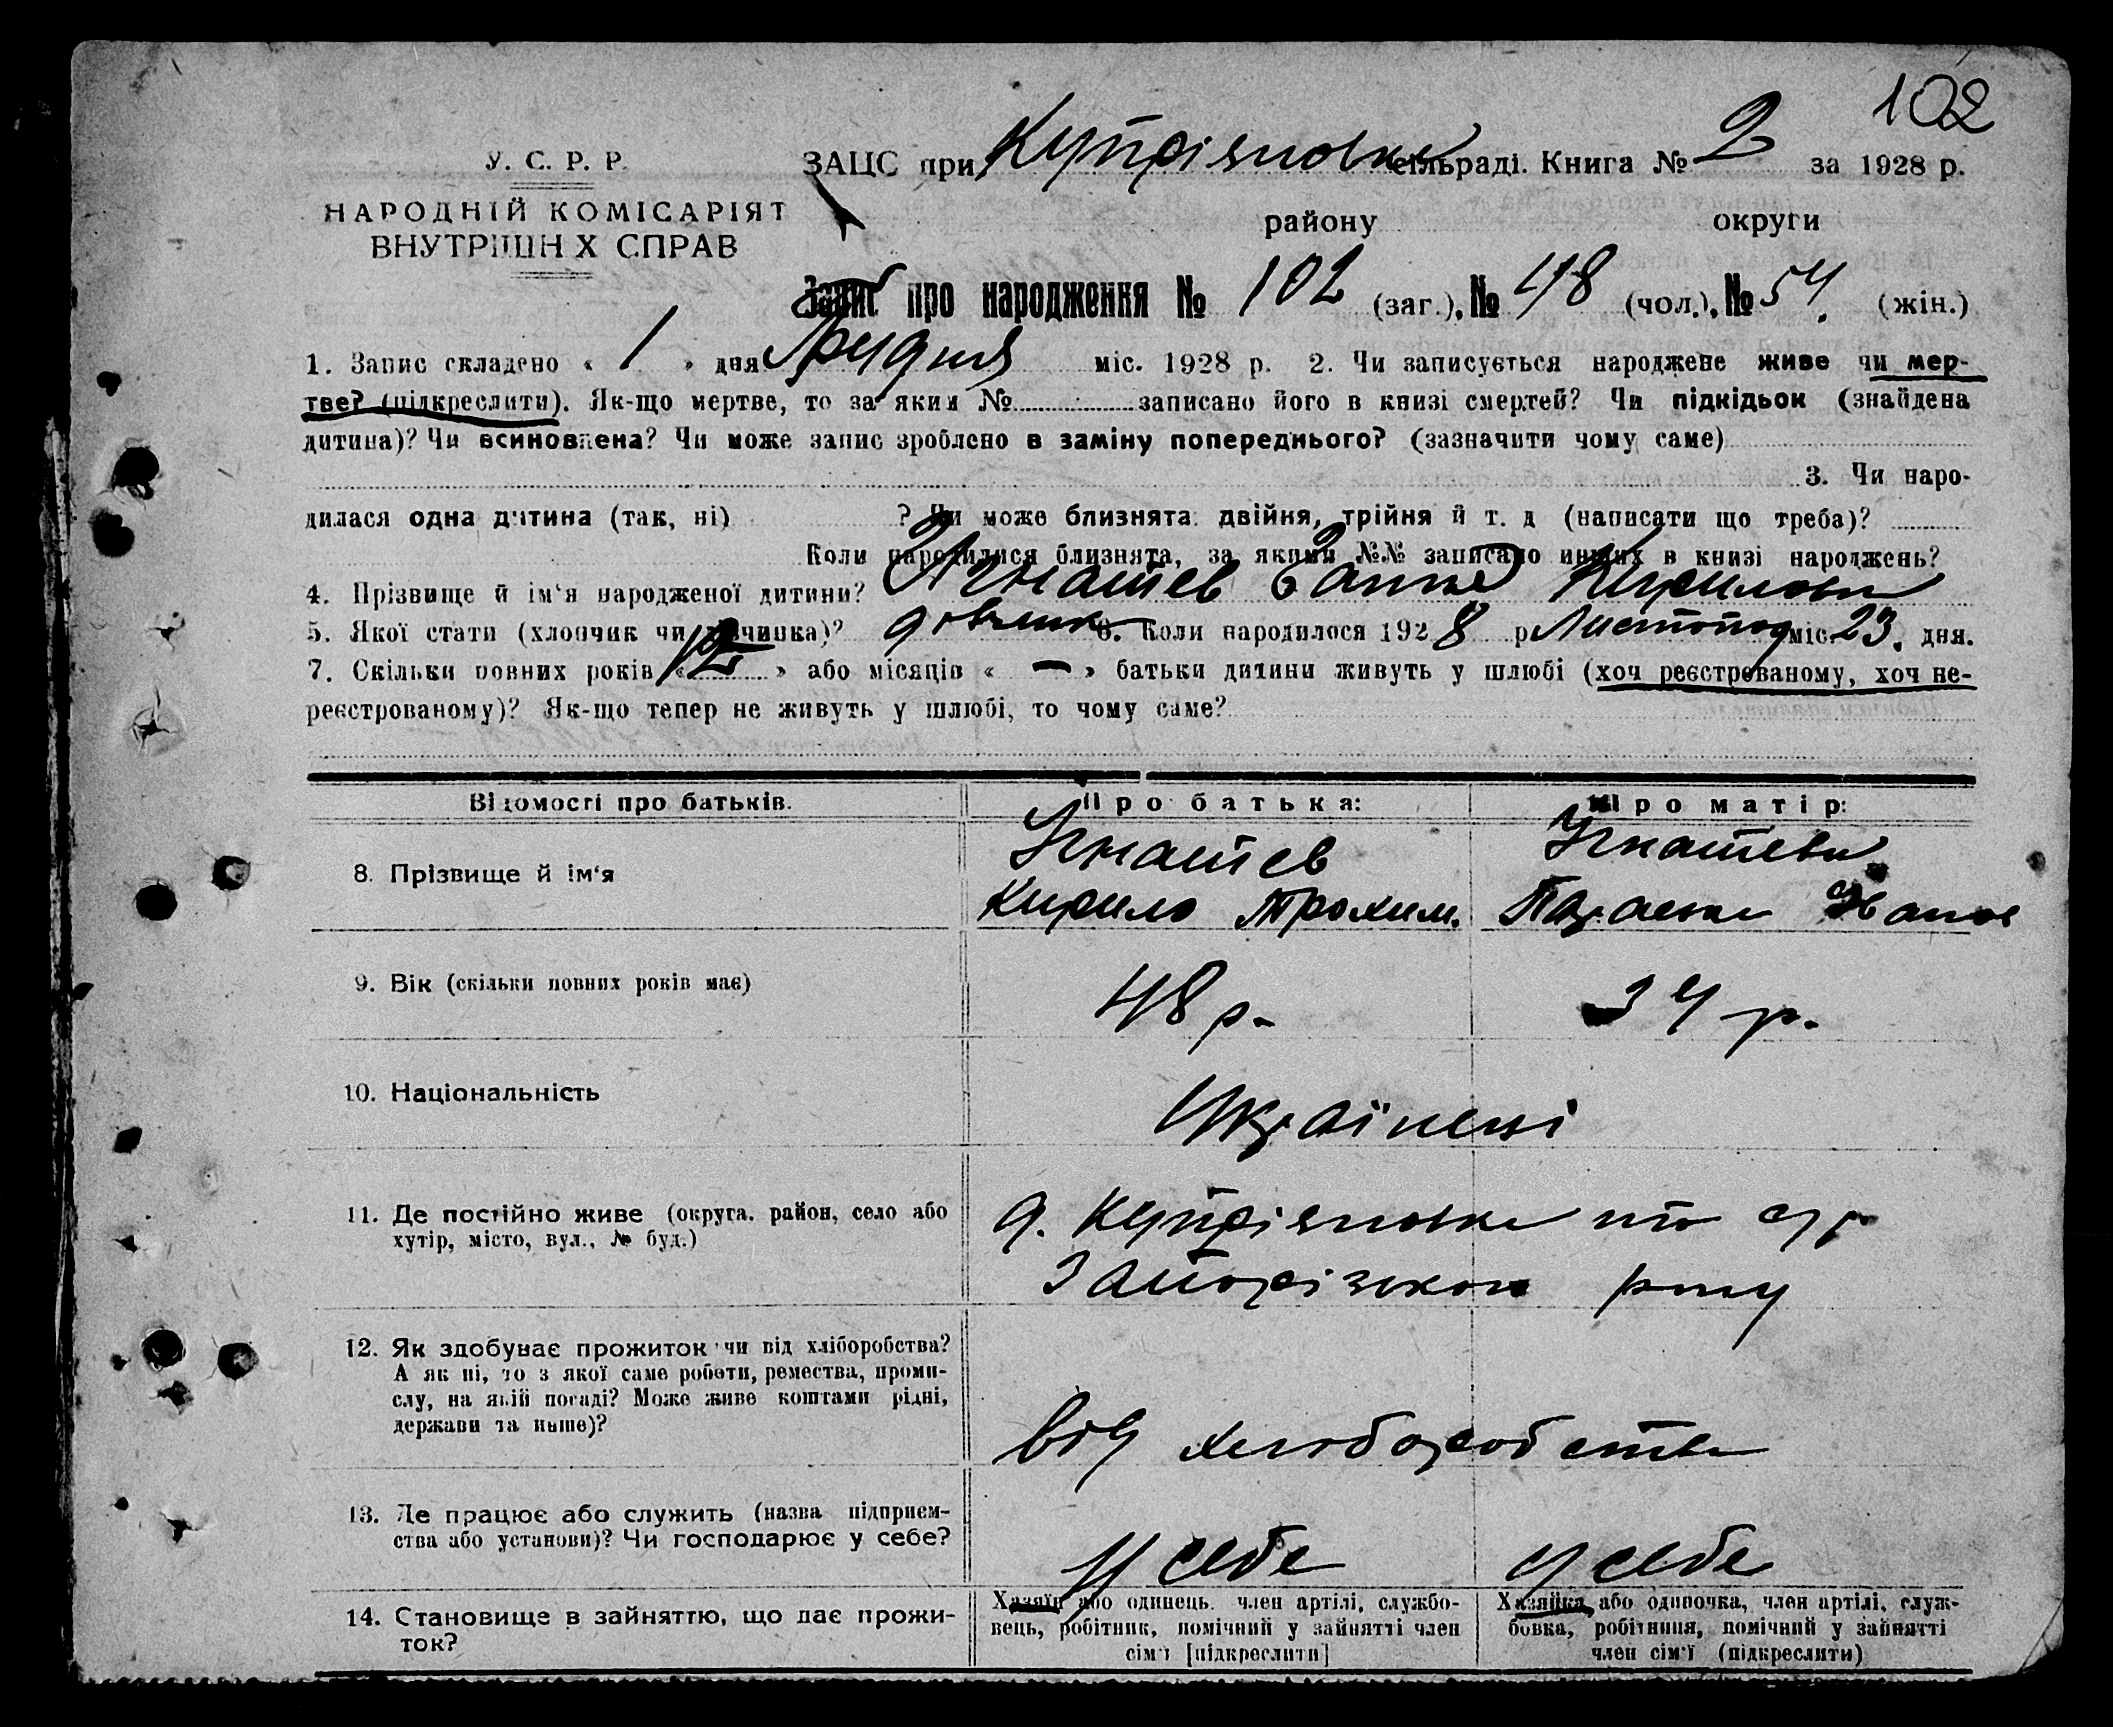 102
У. С. Р. Р.
ЗАЦС при Купріяновке сільраді. Книга № 2 за 1928 р.
НАРОДНІЙ КОМІСАРІЯТ
району округи
ВНУТРІШНІХ СПРАВ
Запис про народження № 102 (заг.), № 48 (чол.), № 54. (жін.)
1. Запис складено « 1 » дня Грудня міс. 1928 р. 2. Чи записується народжене живе чи мер-
тве? (підкреслити). Як-що мертве, то за яким № записано його в книзі смертей? Чи підкідьок (знайдена
дитина)? Чи всиновлена? Чи може запис зроблено в заміну попереднього? (зазначити чому саме)
3. Чи наро-
дилася одна дитина (так, ні) ? Чи може близнята: двійня, трійня й т. д (написати що треба)?
Коли народилися близнята, за якими №№ записано инших в книзі народжень?
4. Прізвище й ім'я народженої дитини? Игнатев Ганна Кирилови
5. Якої стати (хлопчик чи дівчинка)? 6. Коли народилося 1928 р Листопод міс. 23. дня.
7. Скільки повних років « 12 » або місяців « — » батьки дитини живуть у шлюбі (хоч реєстрованому, хоч не-
реєстрованому)? Як-що тепер не живуть у шлюбі, то чому саме?
Відомості про батьків. Про батька: Про матір:
Игнатев Игнатева
8. Прізвище й ім'я
Кирило Трохим. Параска Иванов
9. Вік (скільки повних років має) 48 р. 34 р.
10. Національність Українці
11. Де постійно живе (округа, район, село або д. Купріяновка
хутір, місто, вул., № буд.) Запорізкого р-ну
12. Як здобуває прожиток чи від хліборобства?
А як ні, то з якої саме роботи, ремества, проми-
слу, на якій посаді? Може живе коштами рідні,
держави та инше)? від хліборобства
13. Де працює або служить (назва підприєм-
ства або установи)? Чи господарює у себе? у себе у себе
14. Становище в зайняттю, що дає прожи- Хазяїн або одинець, член артілі, службо- Хазяйка, або одиночка, член артілі, служ-
ток? вець, робітник, помічний у зайнятті член бовка, робітниця, помічний у зайнятті
сім'ї [підкреслити] член сім'ї (підкреслити)